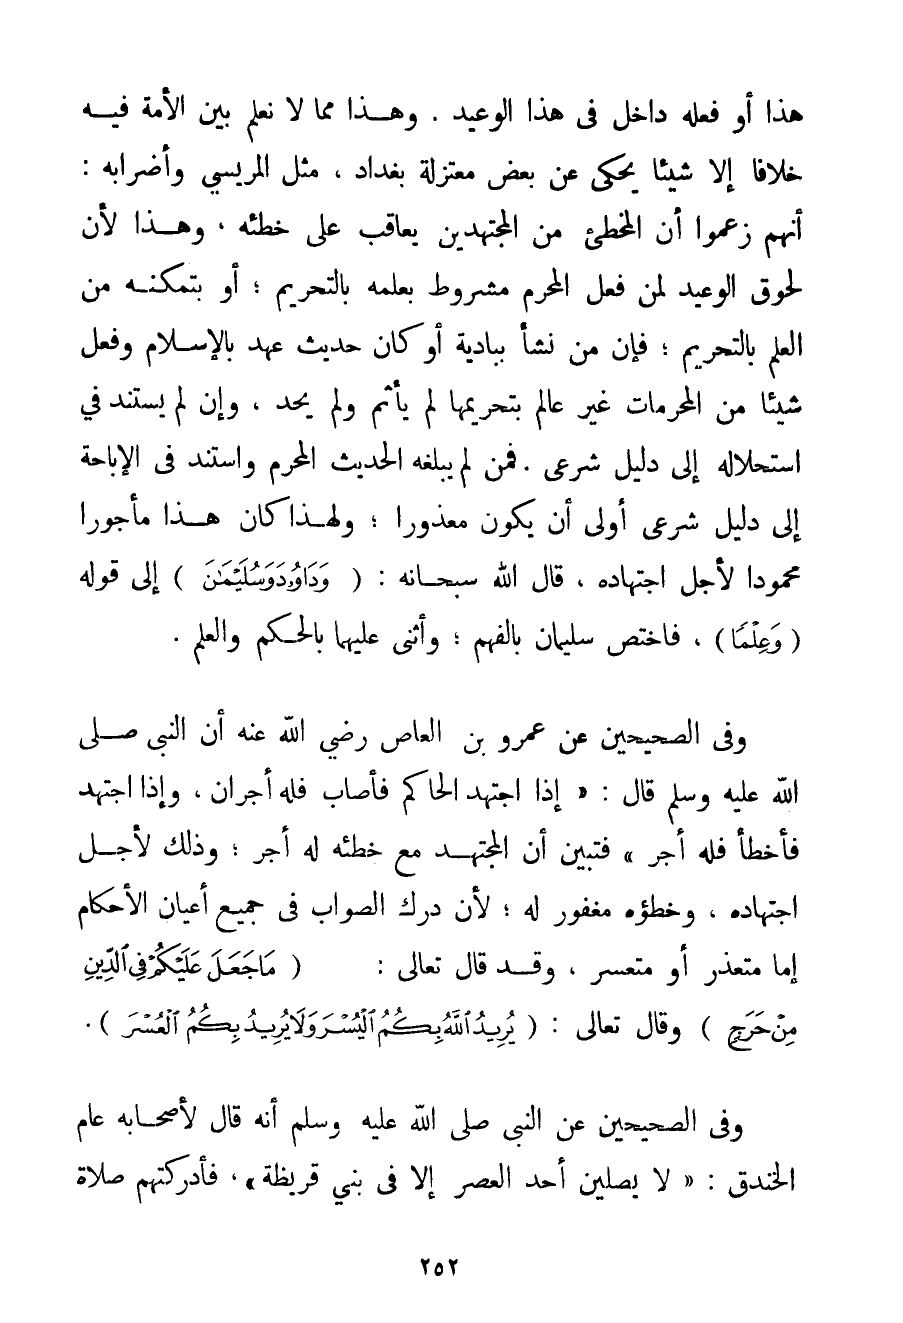 هذا أو فعله داخل فى هذا الوعيد . وهـذا مما لا نعلم بين الأمة فيـه
خلافا إلا شيئا يحكى عن بعض معتزلة بغداد ، مثل المريسي وأضرابه :
أنهم زعموا أن المخطئ من المجتهدين يعاقب على خطئه ، وهـذا لأن
لحوق الوعيد لمن فعل المحرم مشروط بعلمه بالتحريم ؛ أو بتمكنـه من
العلم بالتحريم ؛ فإن من نشأ ببادية أو كان حديث عهد بالإسـلام وفعل
شيئا من المحرمات غير عالم بتحريمها لم يأثم ولم يحد ، وإن لم يستند في
استحلاله إلى دليل شرعى . فمن لم يبلغه الحديث المحرم واستند فى الإباحة
إلى دليل شرعى أولى أن يكون معذورا ؛ ولهـذا كان هـذا مأجورا
محمودا لأجل اجتهاده ، قال الله سبحـانه : ( وَدَاوُۥدَ وَسُلَيْمَٰنَ ) إلى قوله
( وَعِلْمًا ) ، فاختص سليمان بالفهم ؛ وأثنى عليهما بالحـكم والعلم .
وفى الصحيحين عن عمرو بن العاص رضي الله عنه أن النبى صـلى
الله عليه وسلم قال : « إذا اجتهد الحاكم فأصاب فله أجران ، وإذا اجتهد
فأخطأ فله أجر » فتبين أن المجتهـد مع خطئه له أجر ؛ وذلك لأجـل
اجتهاده ، وخطؤه مغفور له ؛ لأن درك الصواب فى جميع أعيان الأحكام
إما متعذر أو متعسر ، وقـد قال تعالى : ( مَا جَعَلَ عَلَيْكُمْ فِى ٱلدِّينِ
مِنْ حَرَجٍ ) وقال تعالى : ( يُرِيدُ ٱللَّهُ بِكُمُ ٱلْيُسْرَ وَلَا يُرِيدُ بِكُمُ ٱلْعُسْرَ ) .
وفى الصحيحين عن النبى صلى الله عليه وسلم أنه قال لأصحـابه عام
الخندق : « لا يصلين أحد العصر إلا فى بني قريظة » ، فأدركتهم صلاة
٢٥٢